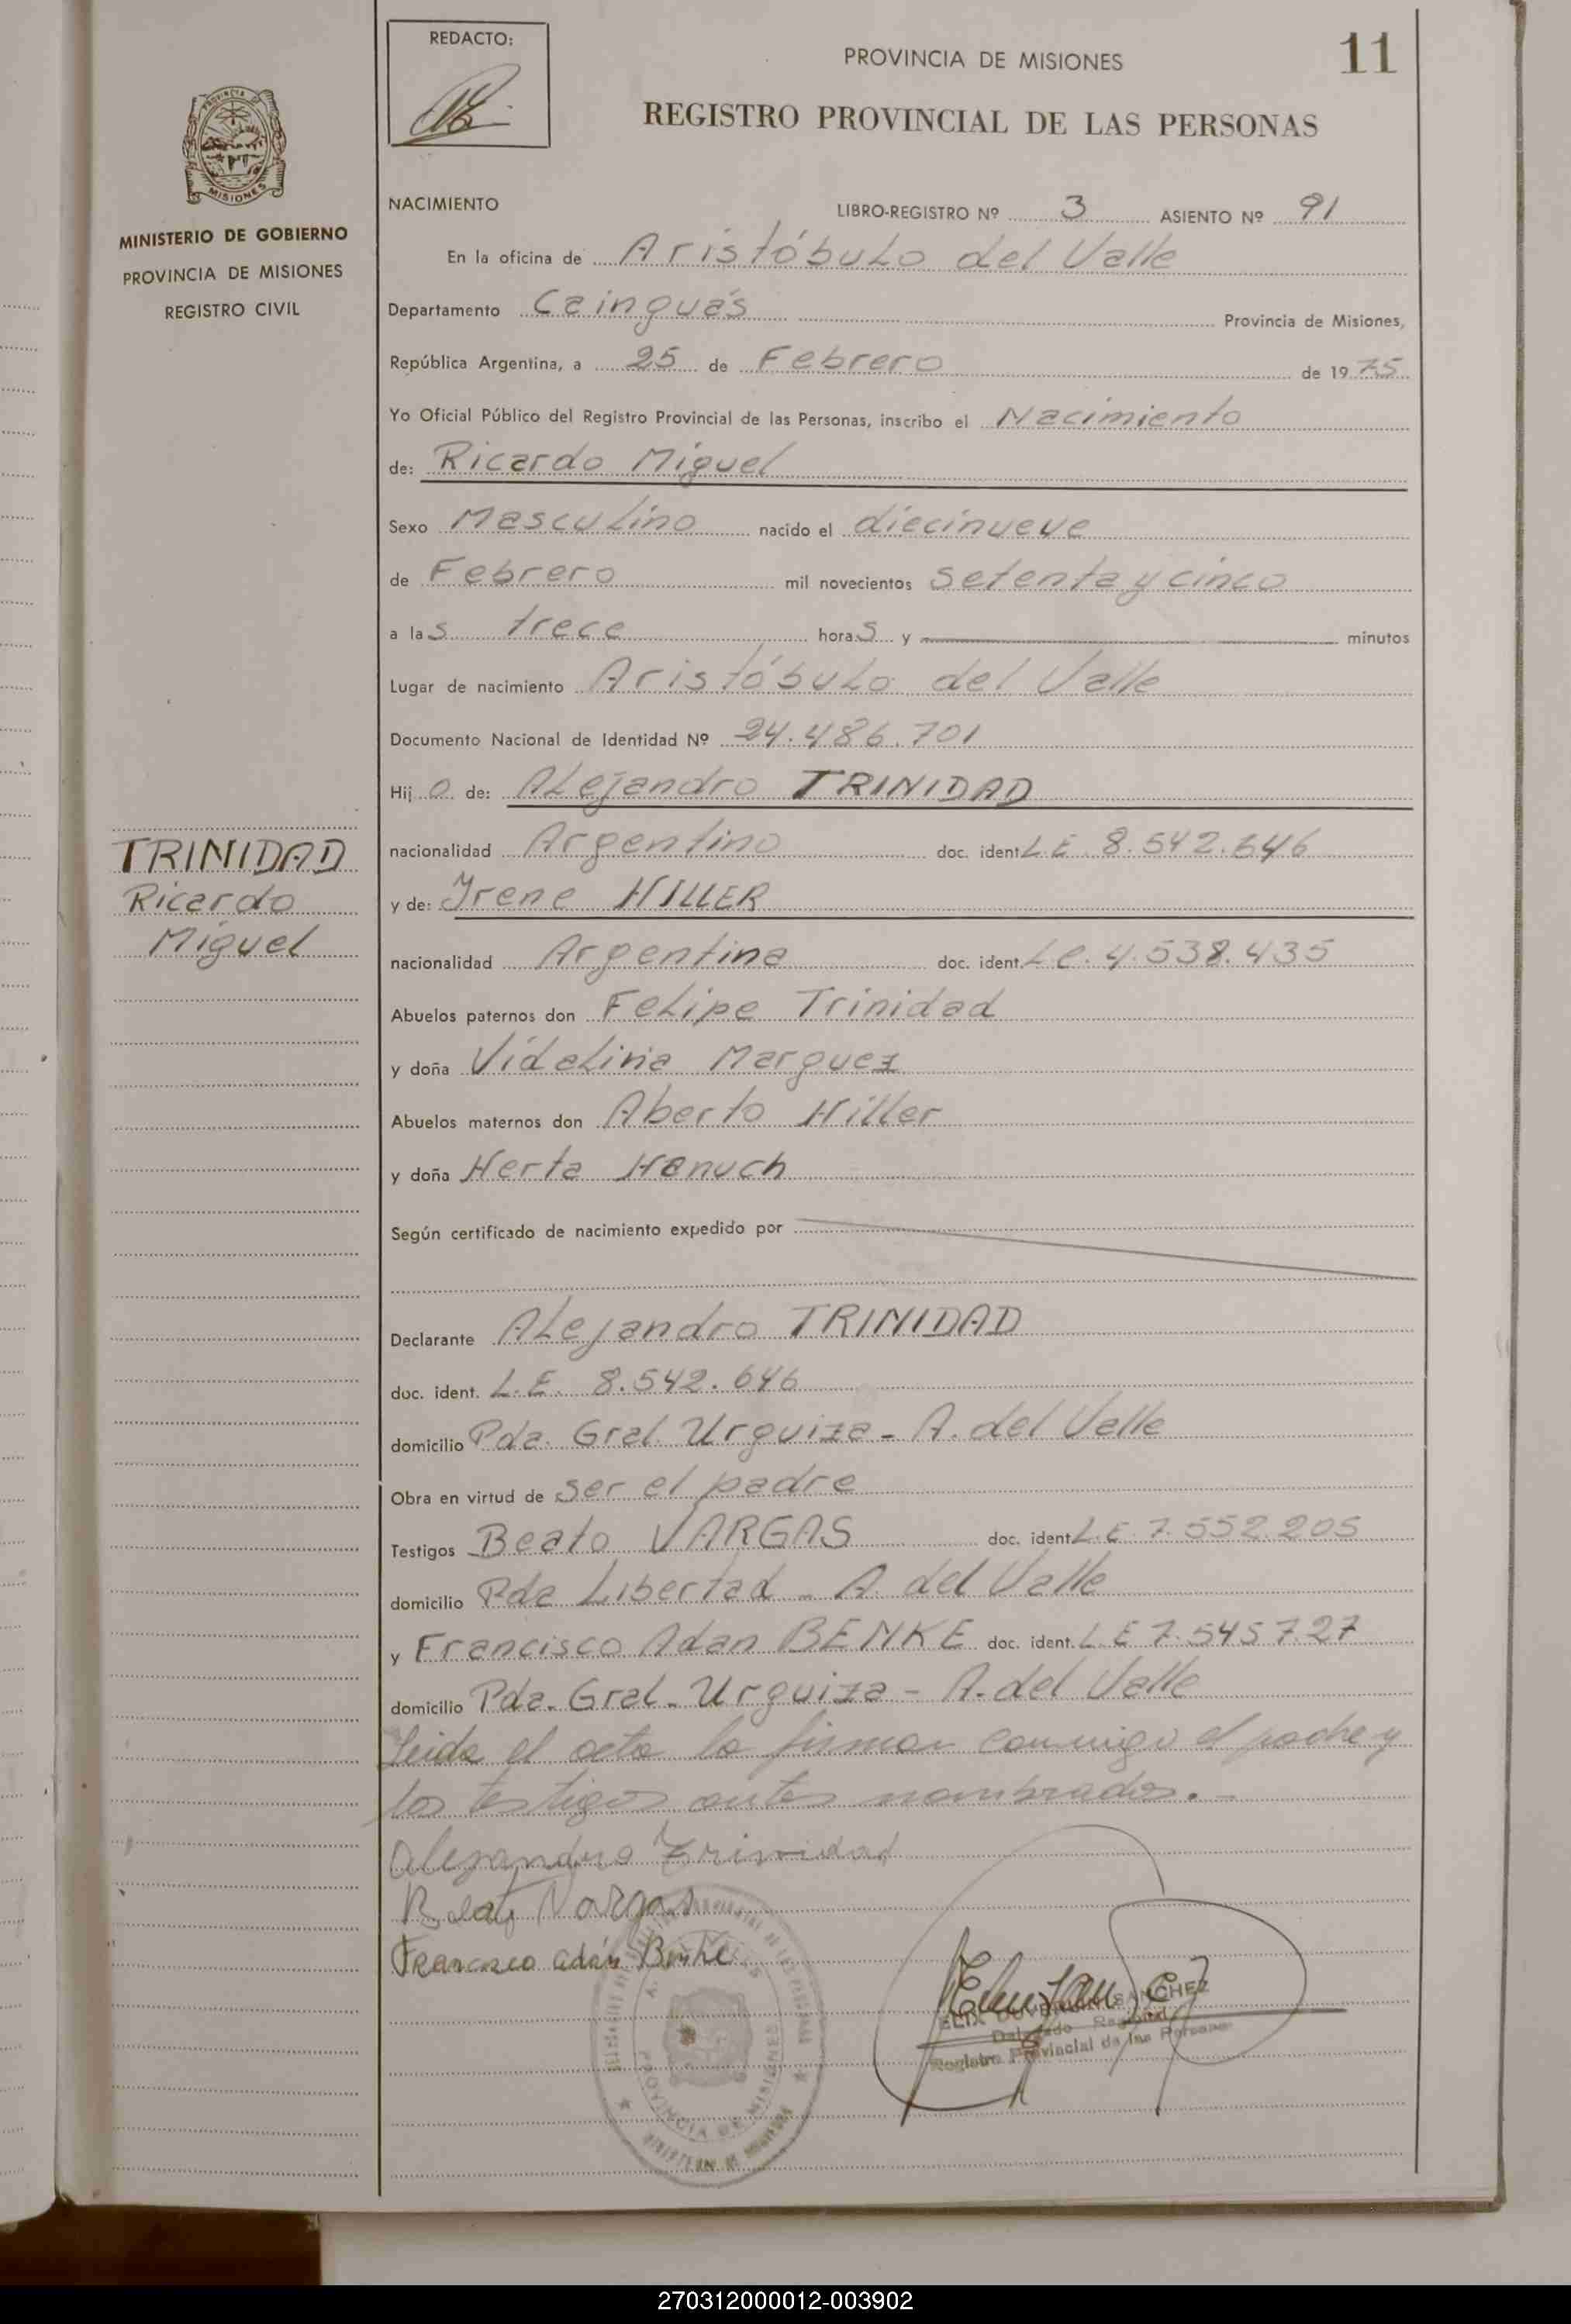 REDACTO:
PROVINCIA DE MISIONES
11
REGISTRO PROVINCIAL DE LAS PERSONAS
PROVINCIA DE
MISIONES
MINISTERIO DE GOBIERNO
PROVINCIA DE MISIONES
REGISTRO CIVIL
NACIMIENTO
LIBRO-REGISTRO Nº 3 ASIENTO Nº 91
En la oficina de Aristóbulo del Valle
Departamento Cainguás Provincia de Misiones,
República Argentina, a 25 de Febrero de 1975
Yo Oficial Público del Registro Provincial de las Personas, inscribo el Nacimiento
de: Ricardo Miguel
Sexo Masculino nacido el diecinueve
de Febrero mil novecientos setenta y cinco
a las trece horas y minutos
Lugar de nacimiento Aristóbulo del Valle
Documento Nacional de Identidad Nº 24.486.701
Hijo de: Alejandro TRINIDAD
TRINIDAD
Ricardo
Miguel
nacionalidad Argentino doc. ident. L.E. 8.542.646
y de: Irene HILLER
nacionalidad Argentina doc. ident. L.C. 4.538.435
Abuelos paternos don Felipe Trinidad
y doña Videlina Marquez
Abuelos maternos don Aberto Hiller
y doña Herta Hanuch
Según certificado de nacimiento expedido por
Declarante Alejandro TRINIDAD
doc. ident. L.E. 8.542.646
domicilio Pda. Gral. Urquiza - A. del Valle
Obra en virtud de ser el padre
Testigos Beato VARGAS doc. ident. L.E 7.552.205
domicilio Pda Libertad - A. del Valle
y Francisco Adan BENKE doc. ident. L.E 7.545727
domicilio Pda. Gral. Urquiza - A. del Valle
Leida el acta la firman conmigo el padre y
los testigos antes nombrados.-
Alejandro Trinidad
Beato Vargas
Francisco adán Benke
SANCHEZ
Delegado Regional
Registro Provincial de las Personas
PROVINCIA DE MISIONES
MINISTERIO DE GOBIERNO
270312000012-003902